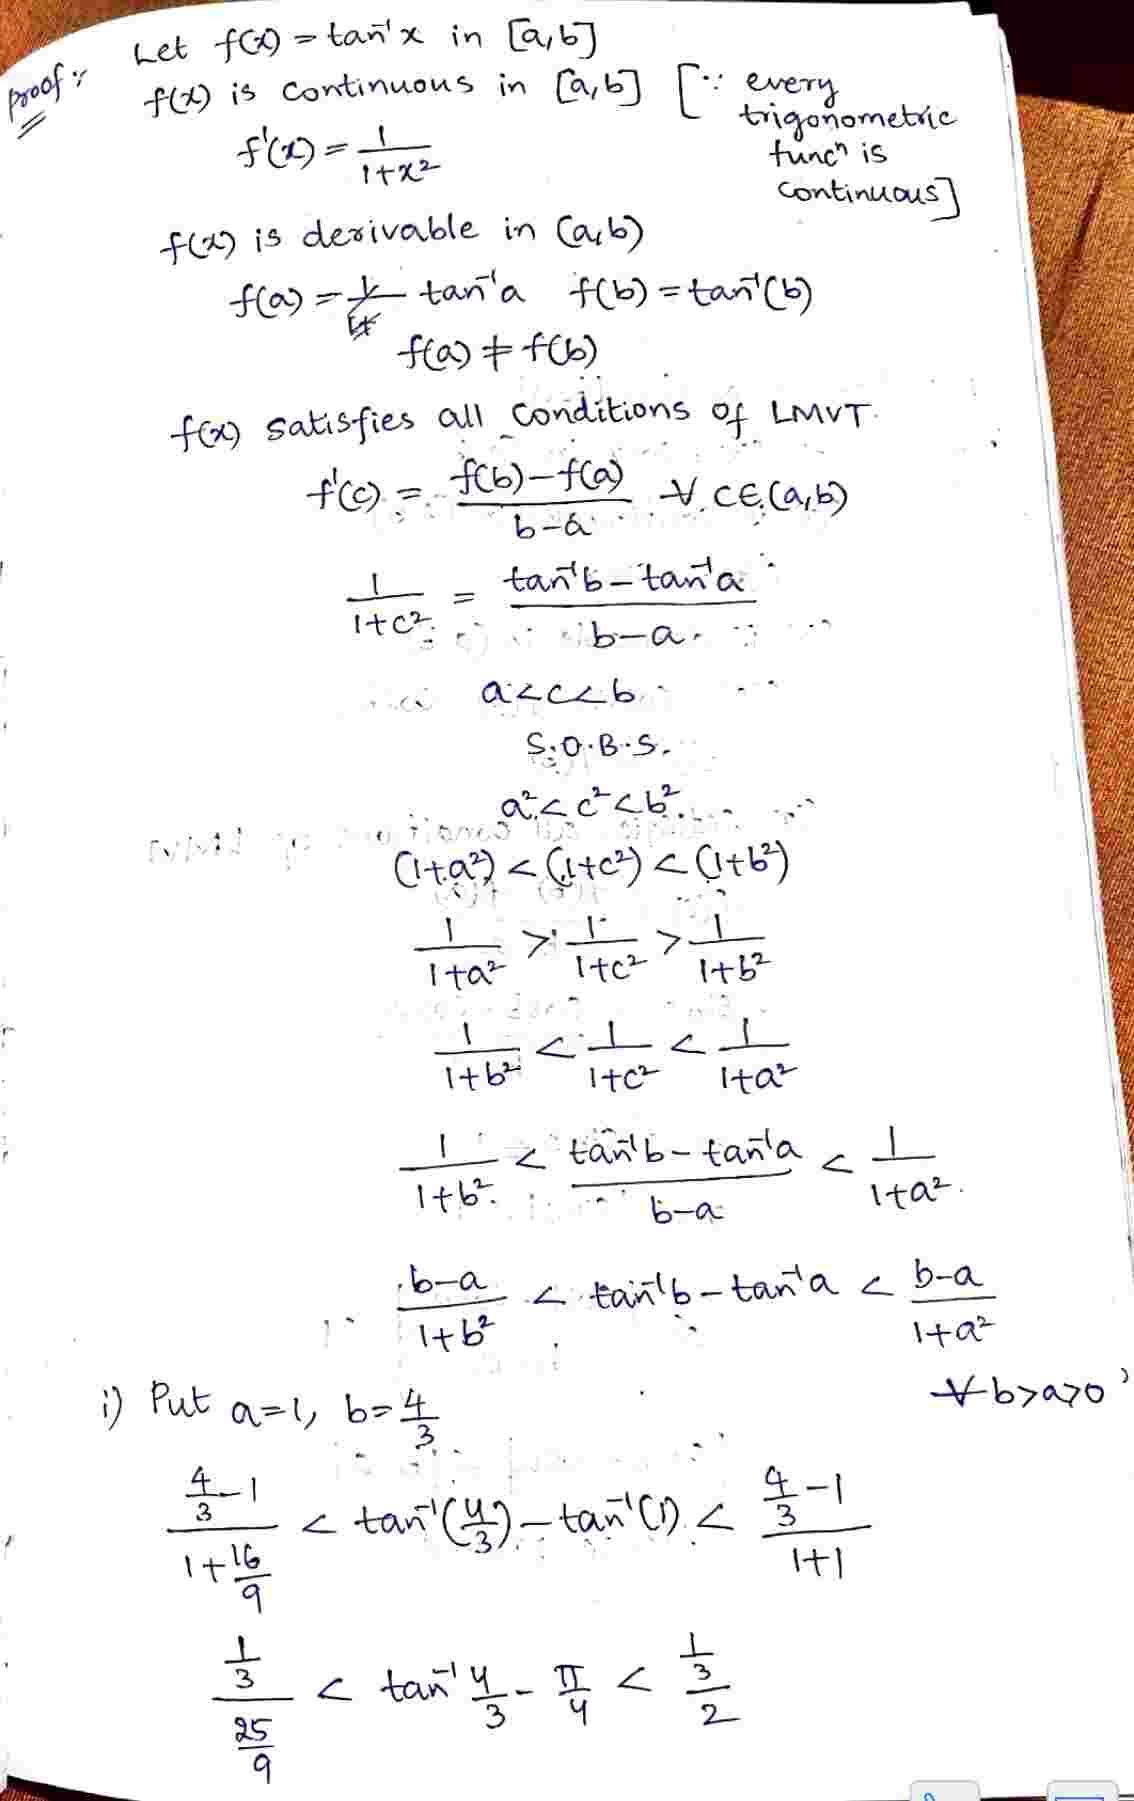 Proof :- Let f(x) = tan⁻¹x in [a,b]
f(x) is continuous in [a,b] [∵ every
trigonometric
funcⁿ is
continuous]
f'(x) = 1/(1+x²)
f(x) is derivable in (a,b)
f(a) = tan⁻¹a f(b) = tan⁻¹(b)
f(a) ≠ f(b)
f(x) satisfies all conditions of LMVT.
f'(c) = (f(b)-f(a))/(b-a) ∀ c∈(a,b)
1/(1+c²) = (tan⁻¹b - tan⁻¹a)/(b-a)
a<c<b
S.O.B.S.
a²<c²<b²
(1+a²) < (1+c²) < (1+b²)
1/(1+a²) > 1/(1+c²) > 1/(1+b²)
1/(1+b²) < 1/(1+c²) < 1/(1+a²)
1/(1+b²) < (tan⁻¹b - tan⁻¹a)/(b-a) < 1/(1+a²)
(b-a)/(1+b²) < tan⁻¹b - tan⁻¹a < (b-a)/(1+a²)
∀ b>a>0
i) Put a=1, b=4/3
(4/3-1)/(1+16/9) < tan⁻¹(4/3) - tan⁻¹(1) < (4/3-1)/(1+1)
(1/3)/(25/9) < tan⁻¹ 4/3 - π/4 < (1/3)/2